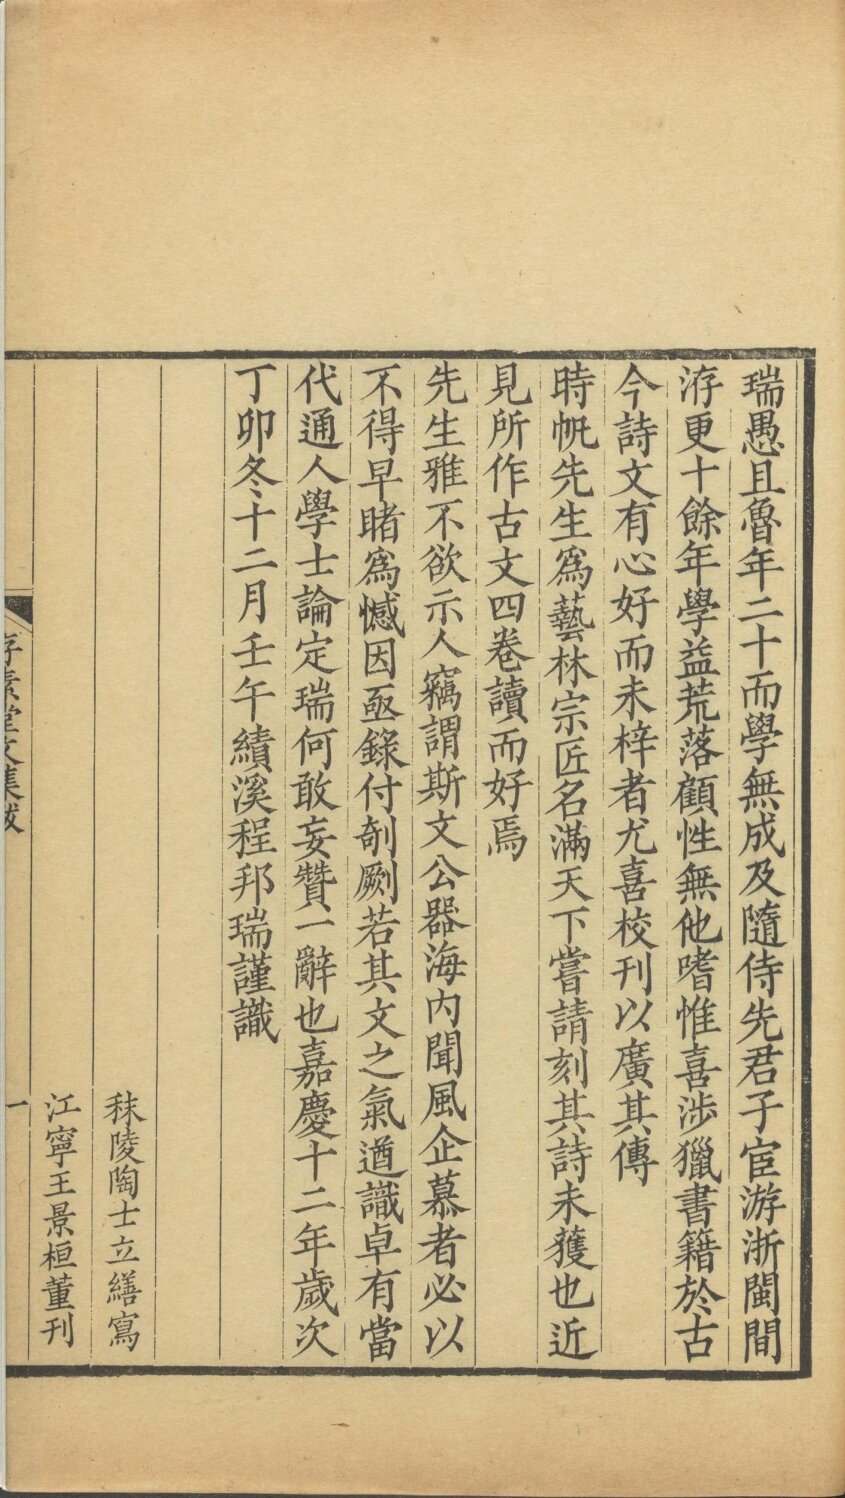 瑞愚且魯年二十而學無成及隨侍先君子宦游浙閩間
洊更十餘年學益荒落顧性無他嗜惟喜涉獵書籍於古
今詩文有心好而未梓者尤喜校刊以廣其傳
時帆先生爲藝林宗匠名滿天下嘗請刻其詩未獲也近
見所作古文四卷讀而好焉
先生雅不欲示人竊謂斯文公器海內聞風企慕者必以
不得早睹爲憾因亟錄付剞劂若其文之氣遒識卓有當
代通人學士論定瑞何敢妄贊一辭也嘉慶十二年歲次
丁卯冬十二月壬午績溪程邦瑞謹識
秣陵陶士立繕寫
江寧王景桓董刊
存素堂文集跋
一